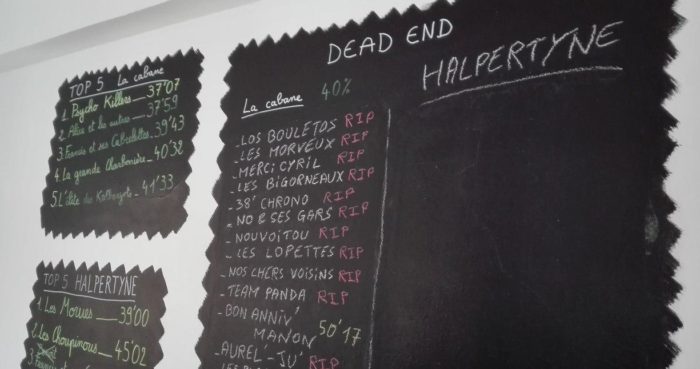 TOP 5 La cabane
1. Psycho Killers 37'07
2. Alice et les autres 37'59
3. Francis et ses Cabrelettes 39'43
4. La grande Charbonnière 40'32
5. L'élite des 41'33
TOP 5 HALPERTYNE
1. Les Morues 39'00
2. Les Choupinous 45'02
3.
DEAD END
La cabane 40%
- LOS BOULETOS RIP
- LES MORVEUX RIP
- MERCI CYRIL RIP
- LES BIGORNEAUX RIP
- 38' CHRONO RIP
- NO & SES GARS RIP
- NOUVOITOU RIP
- LES LOPETTES RIP
- NOS CHERS VOISINS RIP
- TEAM PANDA RIP
- BON ANNIV'
MANON 50'17
- AUREL'-JU' RIP
HALPERTYNE